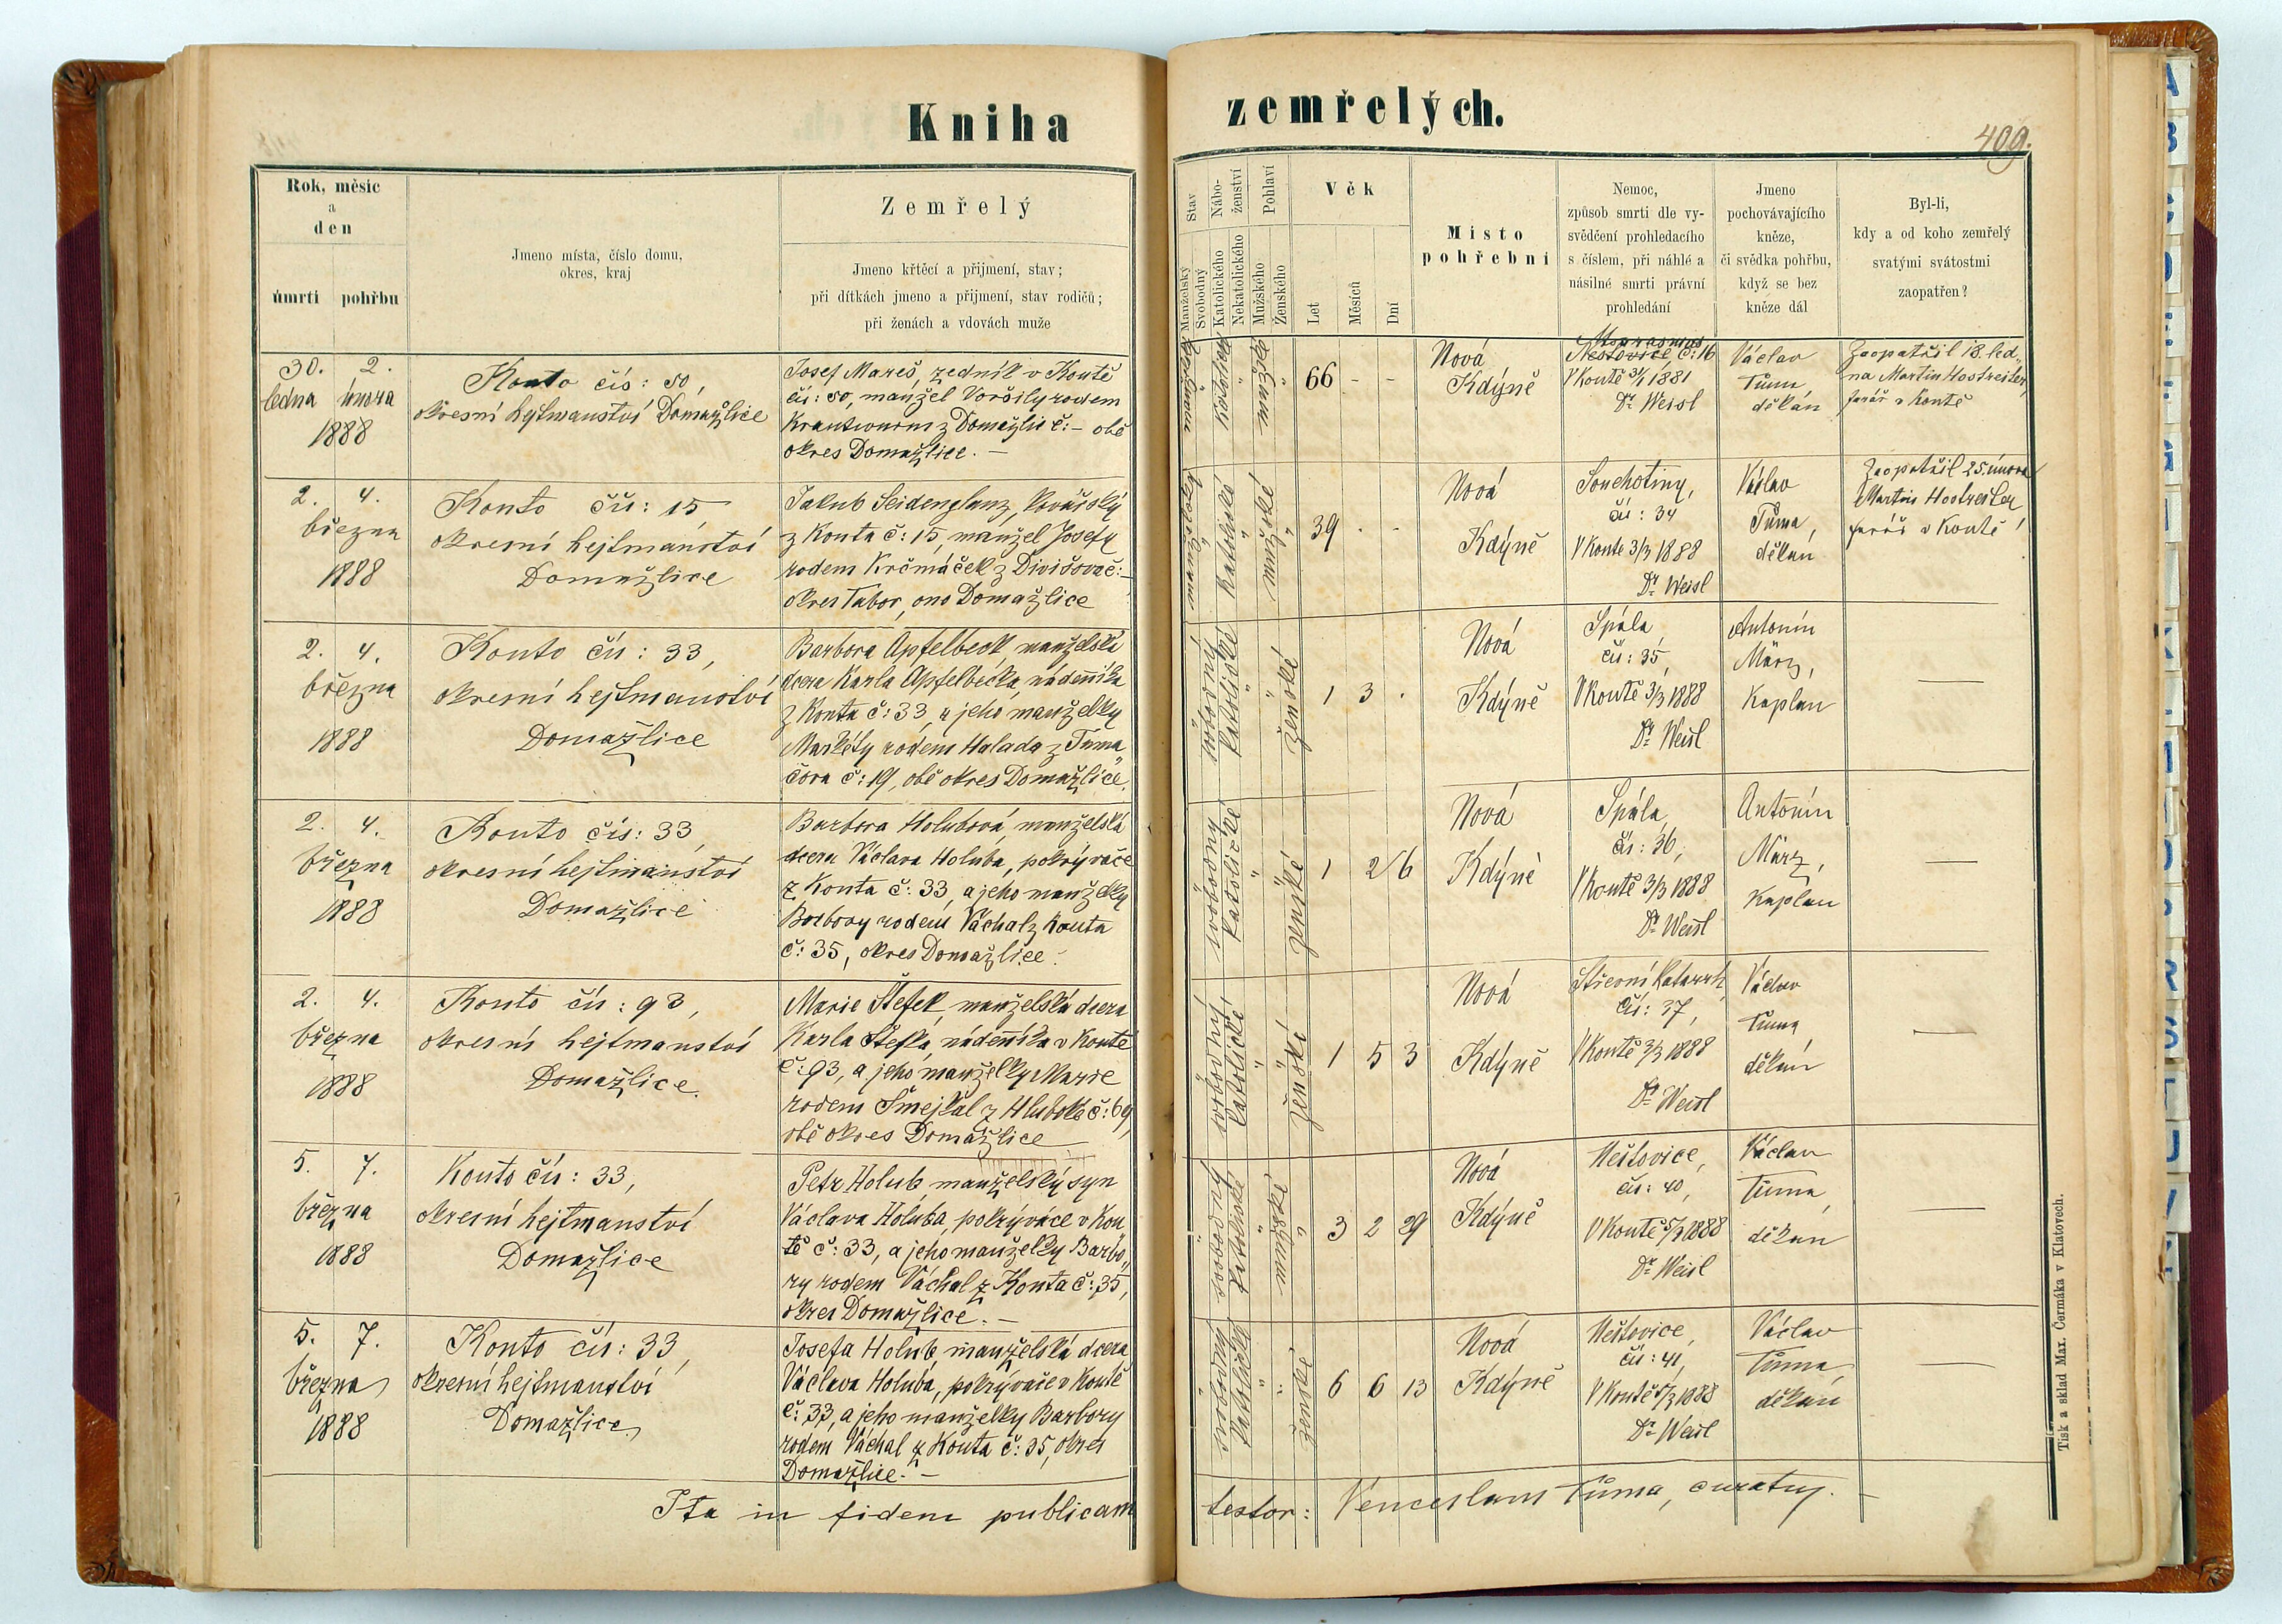 Kniha
zemřelých.
409.
Rok, měsíc
a
den
úmrtí
pohřbu
Jmeno místa, číslo domu,
okres, kraj
Zemřelý
Jmeno křtěcí a přijmení, stav;
při dítkách jmeno a přijmení, stav rodičů;
při ženách a vdovách muže
Stav
Manželský
Svobodný
Nábo-
ženství
Katolického
Nekatolického
Pohlaví
Mužského
Ženského
Věk
Let
Měsíců
Dní
Místo
pohřební
Nemoc,
způsob smrti dle vy-
svědčení prohledacího
s číslem, při náhlé a
násilné smrti právní
prohledání
Jmeno
pochovávajícího
kněze,
či svědka pohřbu,
když se bez
kněze dál
Byl-li,
kdy a od koho zemřelý
svatými svátostmi
zaopatřen?
30. 2.
ledna února
1888
Kouto čís: 50,
okresní hejtmanství Domažlice
Josef Mareš, zedník v Koutě
čís: 50, manžel Voršily rodem
Krautwurm z Domažlic č: – obé
okres Domažlice. –
katolické
mužské
66 - -
Nová
Kdýně
Marasmus
Neštovice, č: 16
V Koutě 31/1 1881
Dr. Weisl
Václav
Tůma,
děkan
Zaopatřil 18. led„
na Martin Hostreiter,
farář v Koutě
2. 4.
března
1888
Kouto čís: 15
okresní hejtmanství
Domažlice
Jakub Seidenglanz, kovářský
z Kouta č: 15, manžel Josefy
rodem Krčmáček z Divišova č: –
okres Tabor, ono Domažlice
katolické
mužské
39 - -
Nová
Kdýně
Souchotiny,
čís: 34
V Koutě 3/3 1888
Dr. Weisl
Václav
Tůma,
děkan
Zaopatřil 25. února
Martin Hostreiter
farář v Koutě
2. 4.
března
1888
Kouto čís: 33,
okresní hejtmanství
Domažlice
Barbora Apfelbeck manželská
dcera Karla Apfelbecka, nádenníka
z Kouta č: 33, a jeho manželky
Markéty rodem Halada z Tuma„
čora č: 19, obé okres Domažlice.
svobodný
katolické
ženské
1 3 .
Nová
Kdýně
Spála
čís: 35,
V Koutě 3/3 1888
Dr. Weisl
Antonín
März,
Kaplan
2. 4.
března
1888
Kouto čís: 33,
okresní hejtmanství
Domažlice
Barbora Holubová, manželská
dcera Václava Holuba, pokrývače
z Kouta č: 33, a jeho manželky
Barbory rodem Váchal z Kouta
č: 35, okres Domažlice.
svobodný
katolické
ženské
1 2 6
Nová
Kdýně
Spála,
čís: 36,
V Koutě 3/3 1888
Dr. Weisl
Antonín
März,
Kaplan
2. 4.
března
1888
Kouto čís: 93,
okresní hejtmanství
Domažlice.
Marie Štefek, manželská dcera
Karla Štefka, nádenníka v Koutě
č: 93, a jeho manželky Marie
rodem Šmejkal z Hluboké č: 69,
obé okres Domažlice
svobodný
katolické
ženské
1 5 3
Nová
Kdýně
Střevní katarrh,
čís: 37,
V Koutě 3/3 1888
Dr. Weisl
Václav
Tůma,
děkan
5. 7.
března
1888
Kouto čís: 33,
okresní hejtmanství
Domažlice
Petr Holub, manželský syn
Václava Holuba, pokrývače v Kou„
tě č: 33, a jeho manželky Barbo„
ry rodem Váchal z Kouta č: 35,
okres Domažlice. –
svobodný
katolické
mužské
3 2 29
Nová
Kdýně
Neštovice,
čís: 40,
V Koutě 5/3 1888
Dr. Weisl
Václav
Tůma,
děkan
5. 7.
března
1888
Kouto čís: 33,
okresní hejtmanství
Domažlice
Josefa Holub manželská dcera
Václava Holuba, pokrývače v Koutě
č: 33, a jeho manželky Barbory
rodem Váchal z Kouta č: 35, okres
Domažlice. –
svobodný
katolické
ženské
6 6 13
Nová
Kdýně
Neštovice,
čís: 41,
V Koutě 5/3 1888
Dr. Weisl
Václav
Tůma,
děkan
Ita in fidem publicam
testor: Venceslaus Tůma, curatus. –
Tisk a sklad Max. Čermáka v Klatovech.